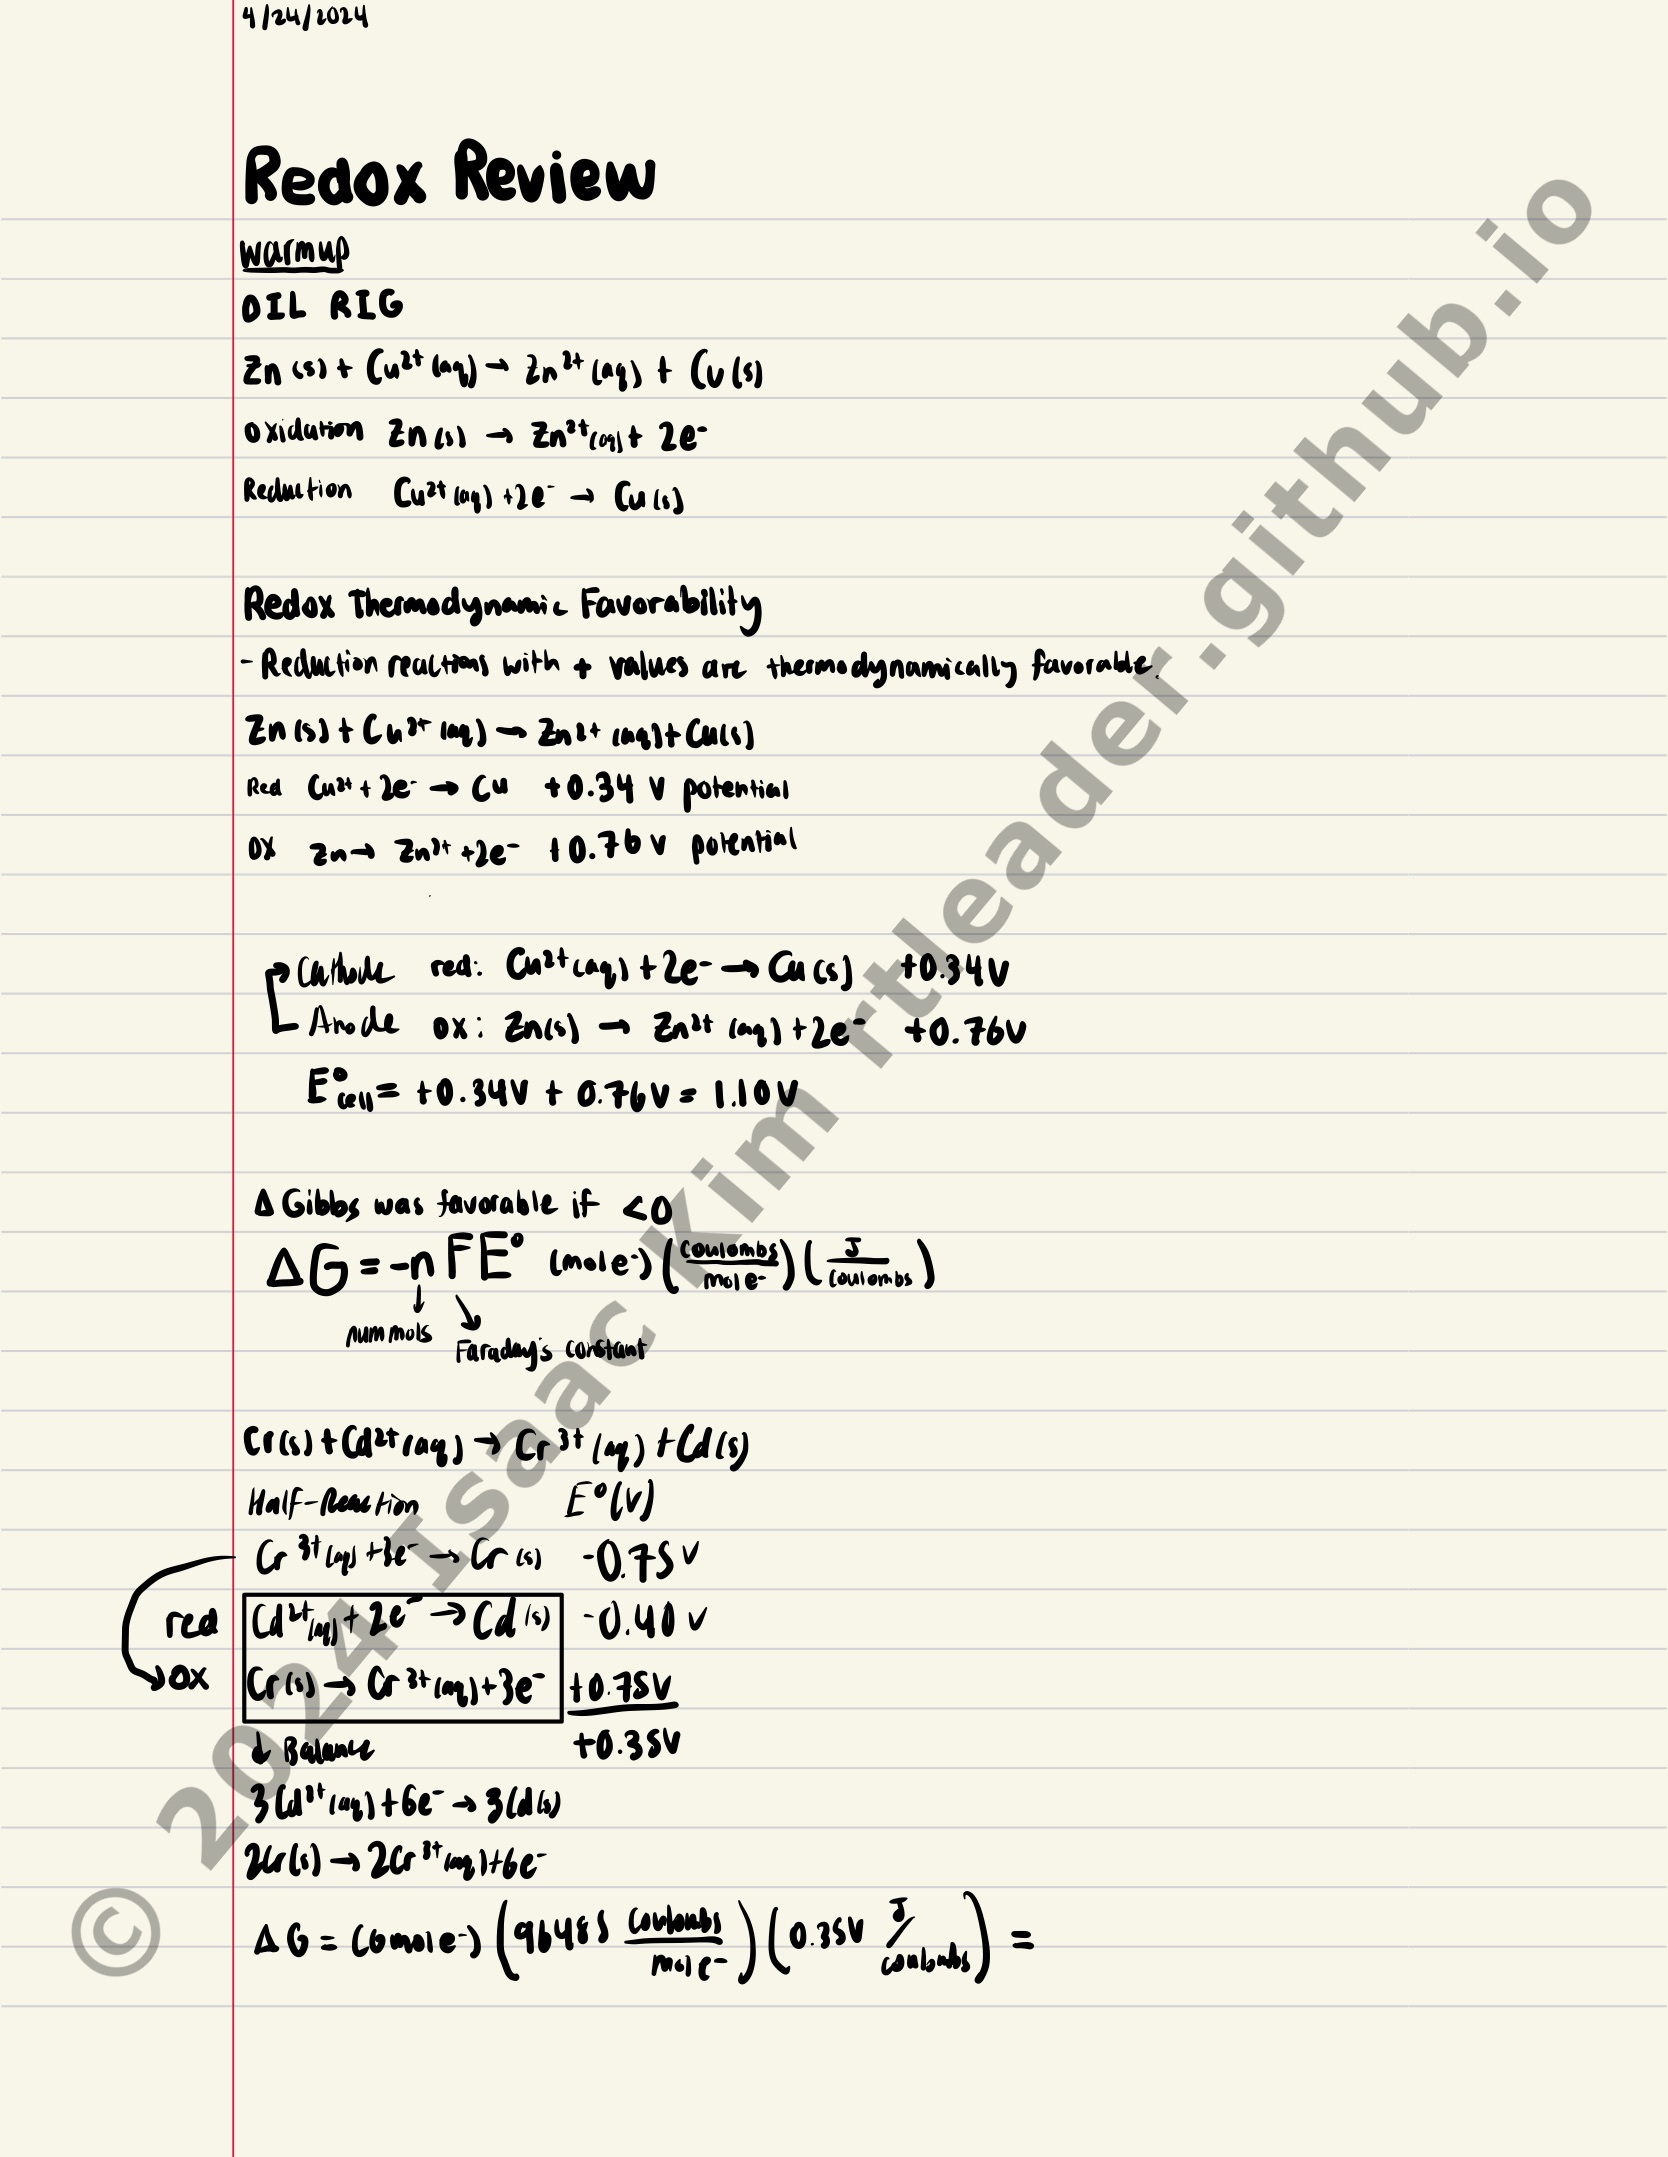 4/24/2024
Redox Review
warmup
OIL RIG
Zn (s) + Cu²⁺ (aq) → Zn²⁺ (aq) + Cu (s)
Oxidation Zn (s) → Zn²⁺ (aq) + 2e⁻
Reduction Cu²⁺ (aq) + 2e⁻ → Cu (s)
Redox Thermodynamic Favorability
- Reduction reactions with + values are thermodynamically favorable.
Zn (s) + Cu²⁺ (aq) → Zn²⁺ (aq) + Cu(s)
Red Cu²⁺ + 2e⁻ → Cu +0.34 V potential
OX Zn → Zn²⁺ + 2e⁻ +0.76 V potential
Cathode red: Cu²⁺ (aq) + 2e⁻ → Cu (s) +0.34V
Anode ox: Zn(s) → Zn²⁺ (aq) + 2e⁻ +0.76V
E°cell = +0.34V + 0.76V = 1.10V
Δ Gibbs was favorable if <0
ΔG = -nFE° (mol e⁻) (coulombs/mol e⁻) (J/coulombs)
num mols
Faraday's constant
Cr(s) + Cd²⁺ (aq) → Cr³⁺ (aq) + Cd(s)
Half-Reaction E°(V)
Cr³⁺ (aq) + 3e⁻ → Cr (s) -0.75 V
red Cd²⁺ (aq) + 2e⁻ → Cd (s) -0.40 V
OX Cr(s) → Cr³⁺ (aq) + 3e⁻ +0.75V
↓ Balance +0.35V
3Cd²⁺ (aq) + 6e⁻ → 3Cd(s)
2Cr(s) → 2Cr³⁺ (aq) + 6e⁻
ΔG = (6 mol e⁻) (96485 coulombs/mol e⁻) (0.35V J/coulombs) =
© 2024 Isaac Kim rtleader.github.io